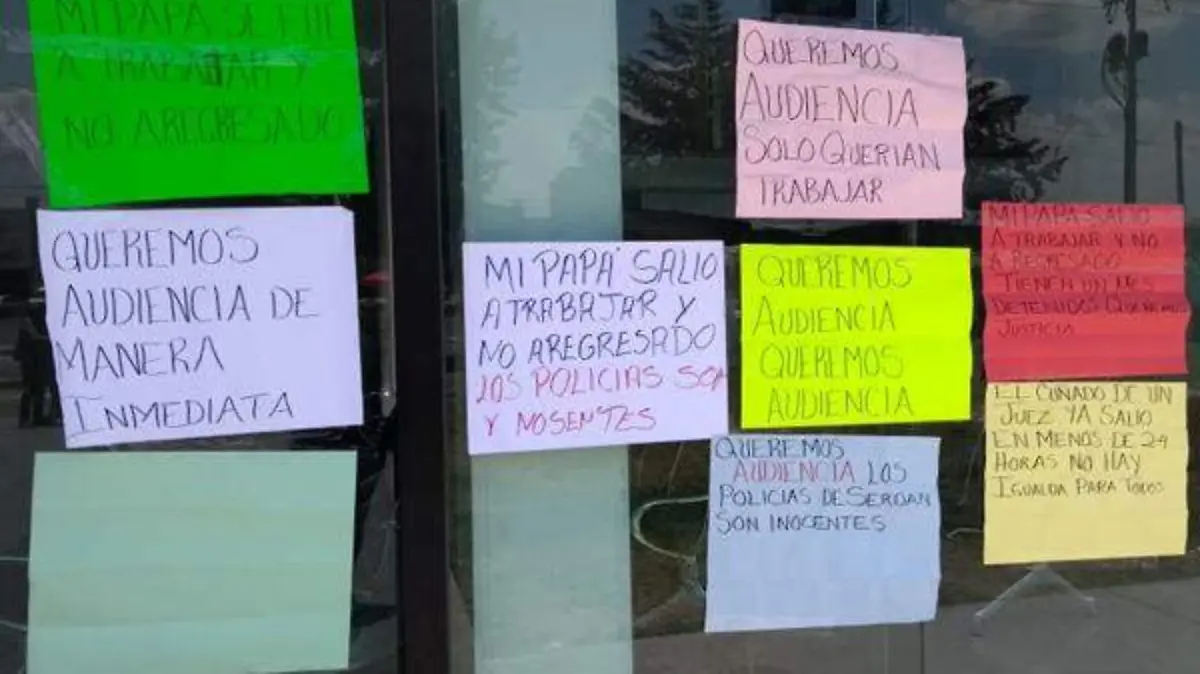 MI PAPA SE FUE
A TRABAJAR Y
NO AREGRESADO
QUEREMOS
AUDIENCIA DE
MANERA
INMEDIATA
MI PAPA' SALIO
A TRABAJAR Y
NO AREGRESADO
LOS POLICIAS SON
Y NOSENTES
QUEREMOS
AUDIENCIA
SOLO QUERIAN
TRABAJAR
QUEREMOS
AUDIENCIA
QUEREMOS
AUDIENCIA
QUEREMOS
AUDIENCIA LOS
POLICIAS DE SERDAN
SON INOCENTES
MI PAPA SALIO
A TRABAJAR Y NO
A REGRESADO
TIENEN UN MES
DETENIDOS QUEREMOS
JUSTICIA
EL CUNADO DE UN
JUEZ YA SALIO
EN MENOS DE 24
HORAS NO HAY
IGUALDA PARA TODOS